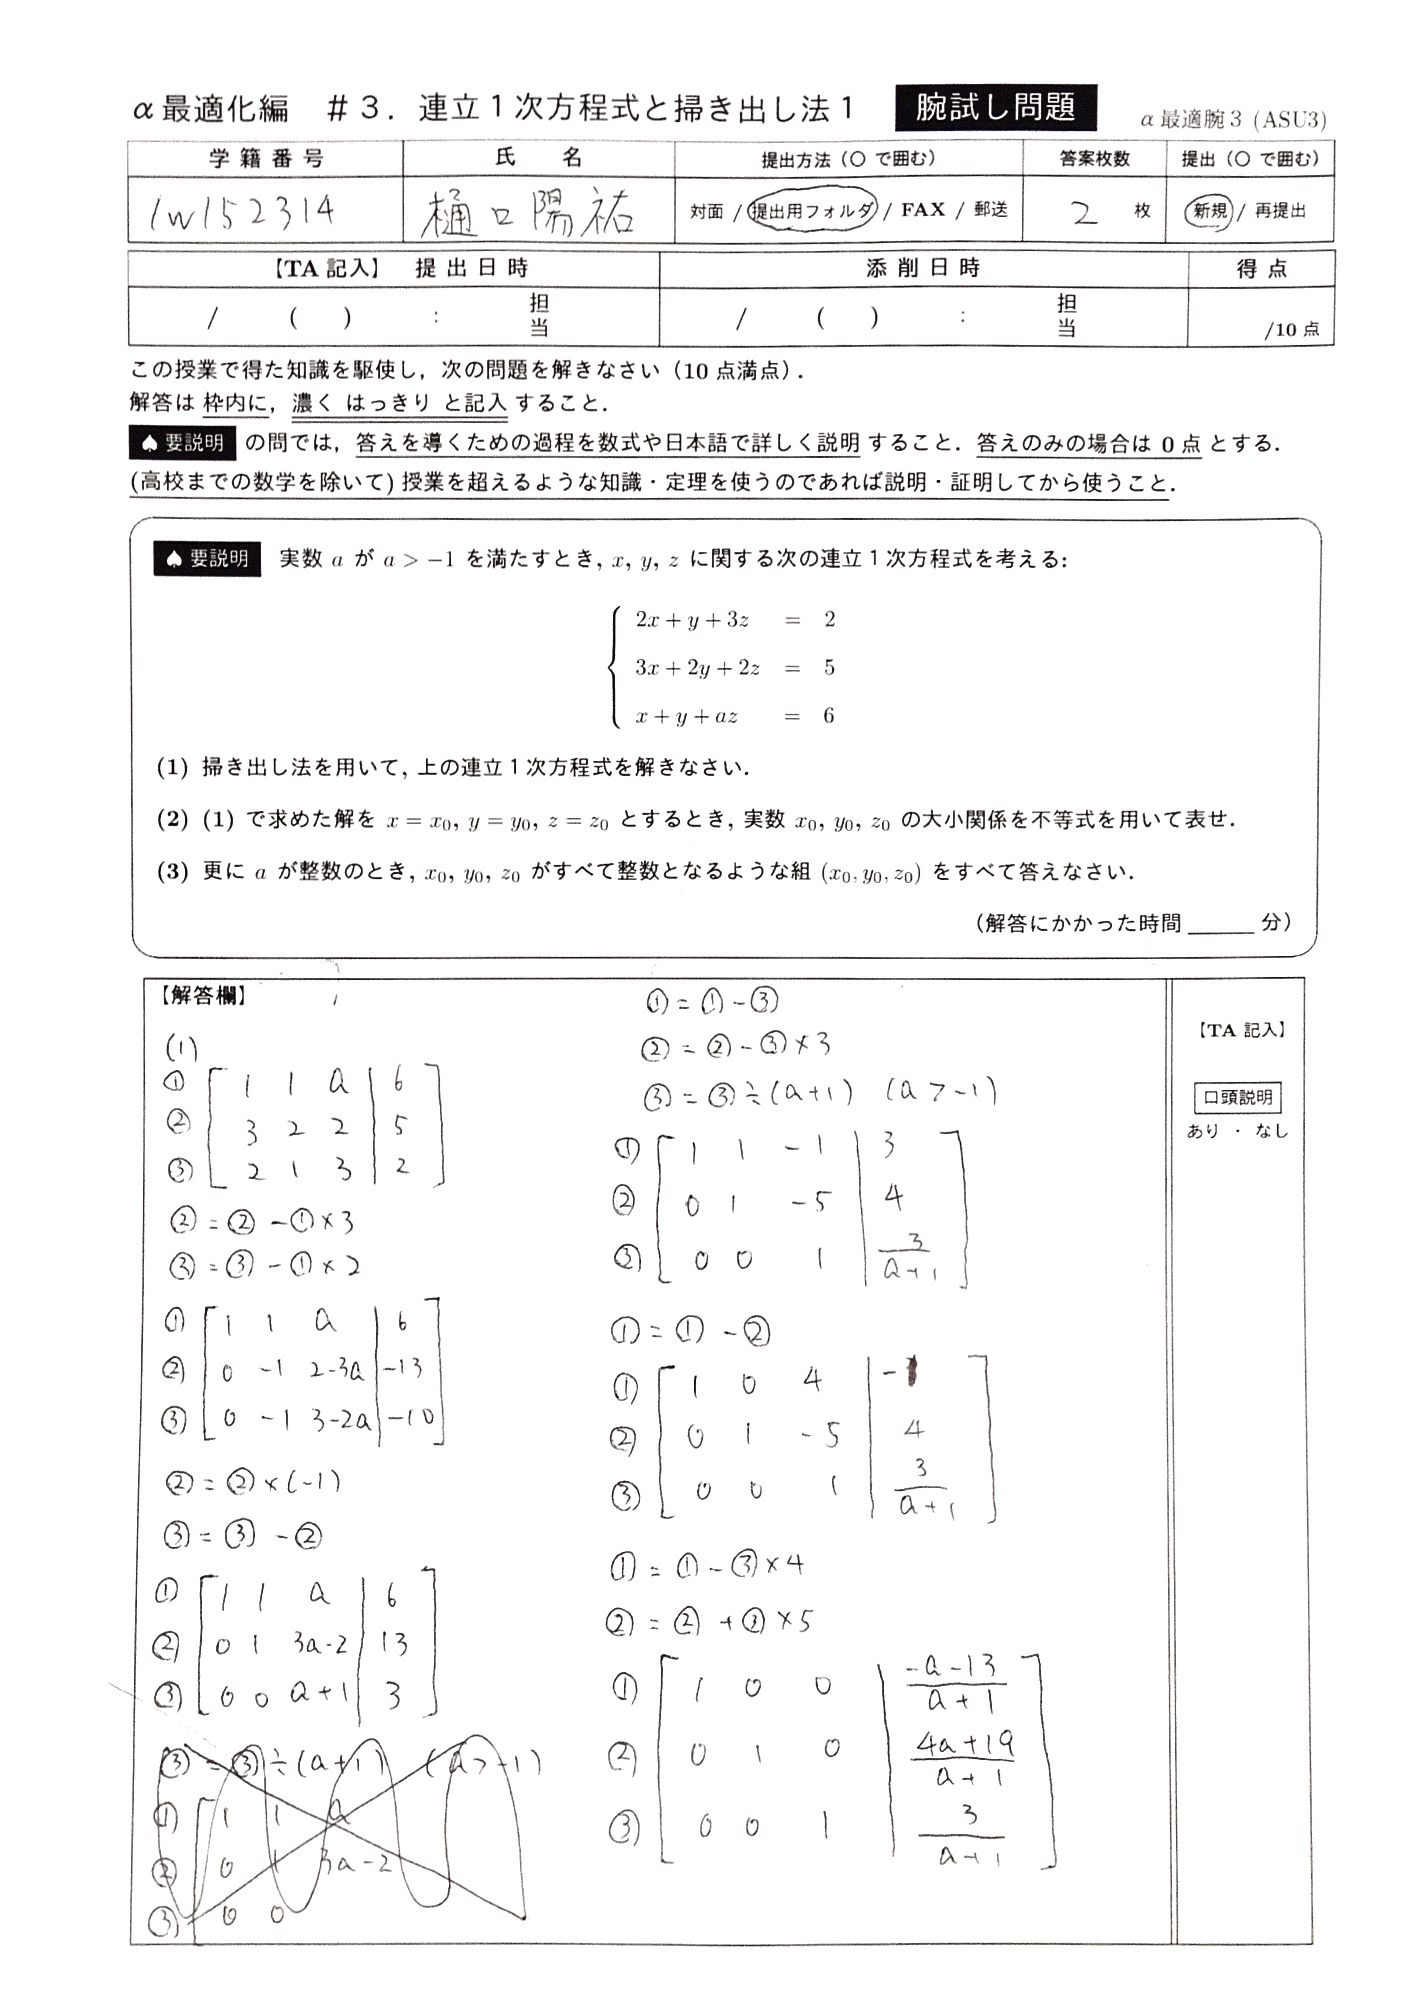 α最適化編 #3. 連立1次方程式と掃き出し法1 腕試し問題 α最適腕3 (ASU3)
学籍番号 氏 名 提出方法（○で囲む） 答案枚数 提出（○で囲む）
1W152314 樋口陽祐 対面 / 提出用フォルダ / FAX / 郵送 2 枚 新規 / 再提出
【TA 記入】 提出日時 添削日時 得点
/ ( ) : 担当 / ( ) : 担当 /10 点
この授業で得た知識を駆使し，次の問題を解きなさい（10 点満点）．
解答は 枠内に，濃く はっきり と記入 すること．
♠ 要説明 の問では，答えを導くための過程を数式や日本語で詳しく説明 すること．答えのみの場合は 0 点 とする．
(高校までの数学を除いて) 授業を超えるような知識・定理を使うのであれば説明・証明してから使うこと．
♠ 要説明 実数 a が a > −1 を満たすとき, x, y, z に関する次の連立1次方程式を考える:
2x + y + 3z = 2
3x + 2y + 2z = 5
x + y + az = 6
(1) 掃き出し法を用いて, 上の連立1次方程式を解きなさい．
(2) (1) で求めた解を x = x₀, y = y₀, z = z₀ とするとき, 実数 x₀, y₀, z₀ の大小関係を不等式を用いて表せ．
(3) 更に a が整数のとき, x₀, y₀, z₀ がすべて整数となるような組 (x₀, y₀, z₀) をすべて答えなさい．
（解答にかかった時間 ______ 分）
【解答欄】
(1)
① [ 1 1 a | 6 ]
② [ 3 2 2 | 5 ]
③ [ 2 1 3 | 2 ]
② = ② - ① × 3
③ = ③ - ① × 2
① [ 1 1 a | 6 ]
② [ 0 -1 2-3a | -13 ]
③ [ 0 -1 3-2a | -10 ]
② = ② × (-1)
③ = ③ - ②
① [ 1 1 a | 6 ]
② [ 0 1 3a-2 | 13 ]
③ [ 0 0 a+1 | 3 ]
③ = ③ ÷ (a+1) (a > -1)
① [ 1 1 a
② 0 1 3a-2
③ 0 0
① = ① - ③
② = ② - ③ × 3
③ = ③ ÷ (a+1) (a > -1)
① [ 1 1 -1 | 3 ]
② [ 0 1 -5 | 4 ]
③ [ 0 0 1 | 3/(a+1) ]
① = ① - ②
① [ 1 0 4 | -1 ]
② [ 0 1 -5 | 4 ]
③ [ 0 0 1 | 3/(a+1) ]
① = ① - ③ × 4
② = ② + ③ × 5
① [ 1 0 0 | (-a-13)/(a+1) ]
② [ 0 1 0 | (4a+19)/(a+1) ]
③ [ 0 0 1 | 3/(a+1) ]
【TA 記入】
口頭説明
あり ・ なし